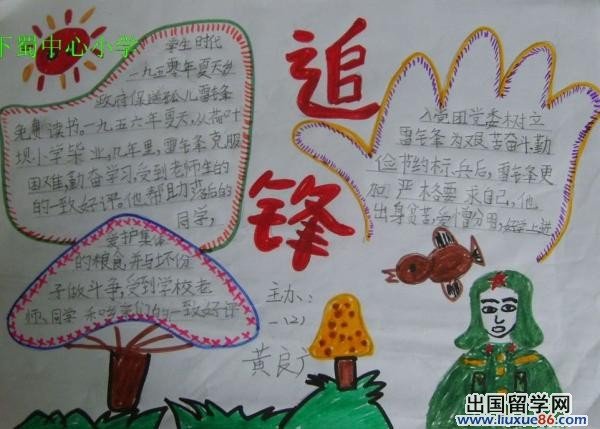 下蜀中心小学
学生时代
一九五零年夏天乡
政府保送孤儿雷锋
免费读书。一九五六年夏天,从荷叶
坝小学毕业,几年里,雷锋克服
困难,勤奋学习,受到老师生的
的一致好评。他帮助落后的
同学,
爱护集体
的粮食,并与坏份
子做斗争,受到学校老
师、同学和吃亲们的一致好评
追
锋
主办:
一(2)
黄良广
入党团党委树立
雷锋为艰苦奋斗,勤
俭节约标兵后,雷锋更
加严格要求自己,他
出身贫苦,爱憎分明,好学上进
出国留学网
www.liuxue86.com